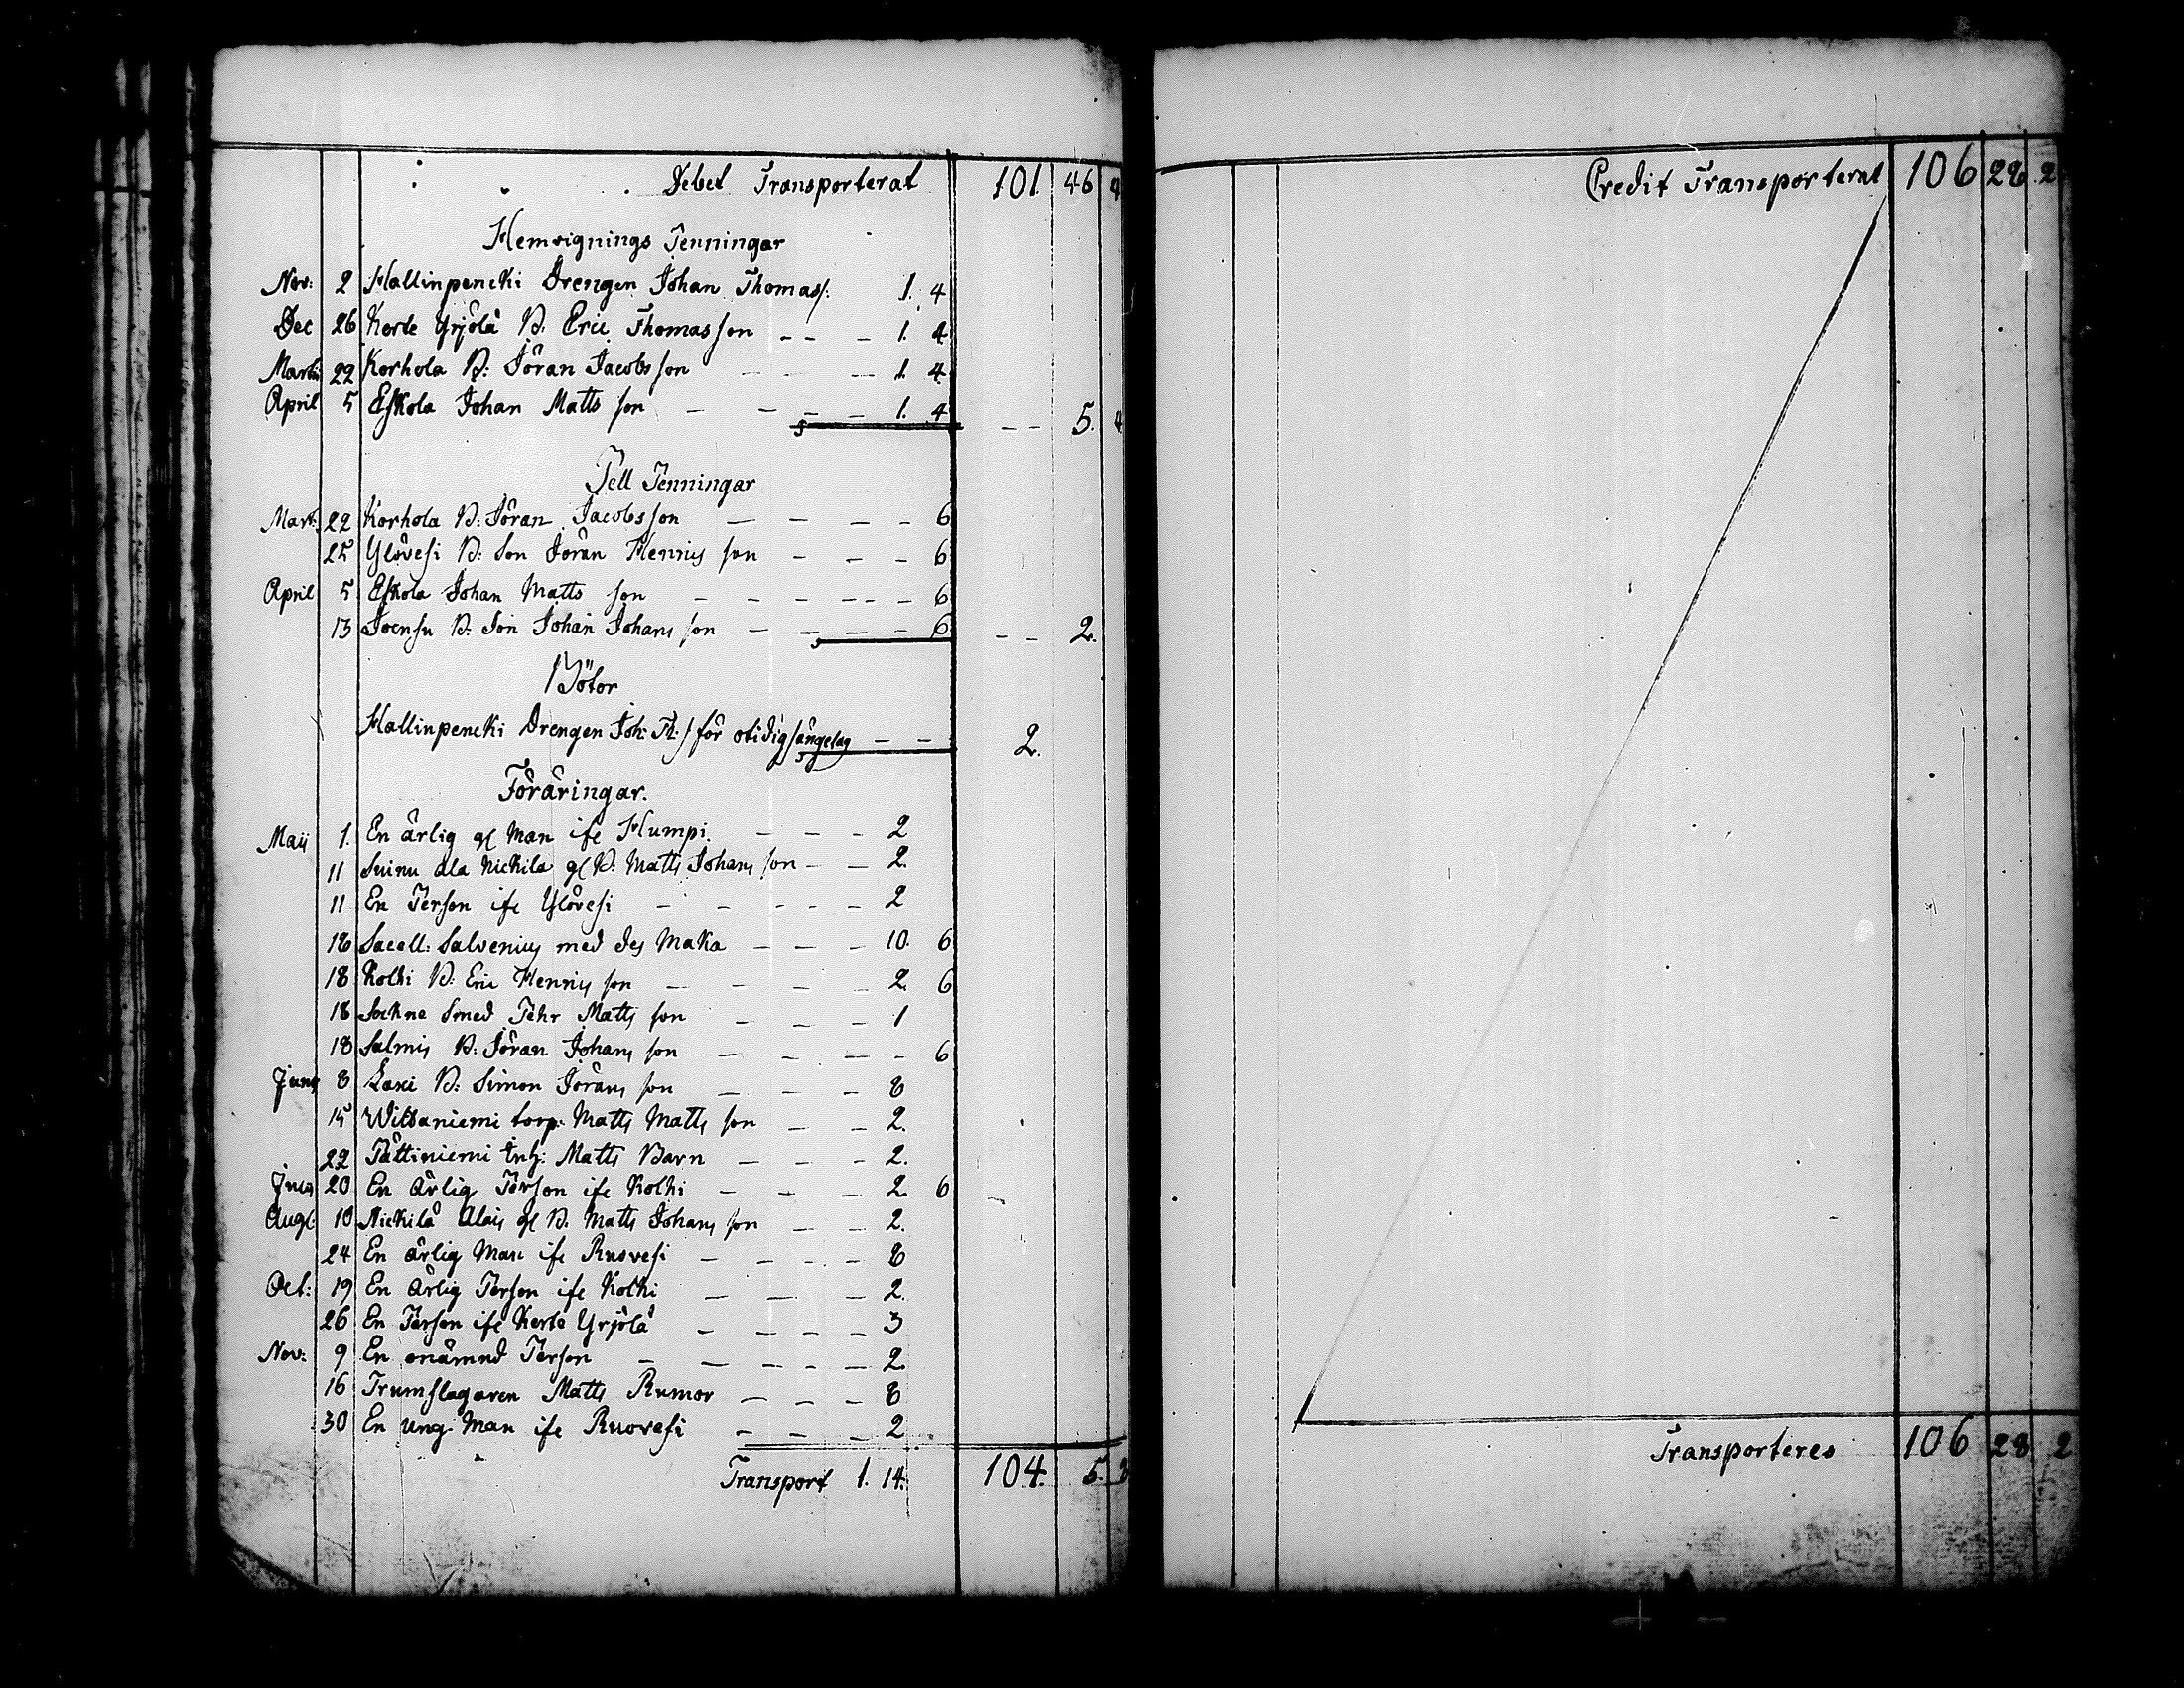 Debet Transporterat 101 46 4
Hemvignings Penningar
Nov: 2 Hallinpencki Drengen Johan Thomas/: 1. 4
Dec 26 Kerte Yrjölä B: Eric Thomas son 1. 4
Martii 22 Korhola B: Jöran Jacobs son 1. 4
April 5 Eskola Johan Matts son 1. 4 5. 4
Tell Penningar
Mart: 22 Korhola B: Jöran Jacobs son 6
25 Ylövesi B: Son Jöran Henrics son 6
April 5 Eskola Johan Matts son 6
13 Joensu B: Son Johan Johans son 6 2.
Böter
Hallinpencki Drengen Joh: Th:/ för otidig sängelag 2.
Föräringar.
Maij 1. En ärlig gl Man ifr Humpi 2
11 Suinu ala Nickila gl B: Matts Johans son 2.
11 En Person ifr Ylövesi 2
18 Sacell: Salvenius med des Maka 10. 6
18 Kolhi B: Eric Henrics son 2. 6
18 Sockne Smed Pehr Matts son 1
18 Salmis B: Jöran Johans son 6
Junij 8 Laxi B: Simon Jörans son 8
15 Witsaniemi torp: Matts Matts son 2.
22 Pättiniemi Inh: Matts Barn 2.
Julij 20 En ärlig Person ifr Kolhi 2. 6
Augl: 10 Nickilä Alais gl B. Matts Johans son 2.
24 En ärlig Man ifr Ruovesi 8
Oct: 19 En ärlig Person ifr Kolhi 2.
26 En Person ifr Kerte Yrjölä 3
Nov: 9 En onämnd Person 2.
16 Trumslagaren Matts Rumor 8
30 En ung Man ifr Ruovesi 2
Transport 1. 14. 104. 5.
Credit Transporterat 106 28 2
Transporteres 106 28 2